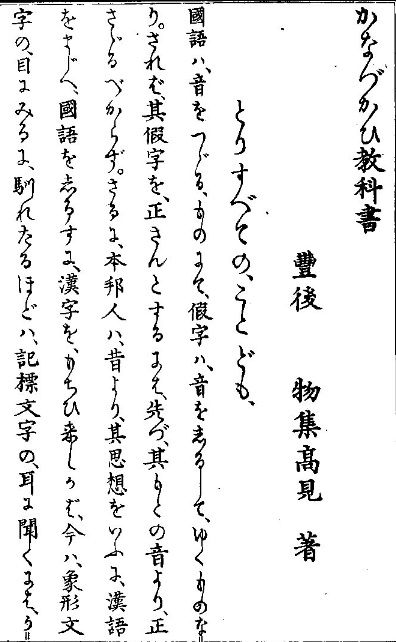 かなづかひ教科書
豐後 物集高見 著
とりすべての、ことども、
國語ハ、音をつゞる、ものにて、假字ハ、音を志るして、ゆくものな
り。されバ、其假字を、正さんとするにも、先づ、其もとの音より、正
さゞるべからず。さるに、本邦人ハ、昔より、其思想をいふに、漢語
をまじへ、國語を志るすに、漢字を、もちひ來しかバ、今ハ、象形文
字の、目にみるに、馴れたるほどハ、記標文字の、耳に聞くにも、う〓